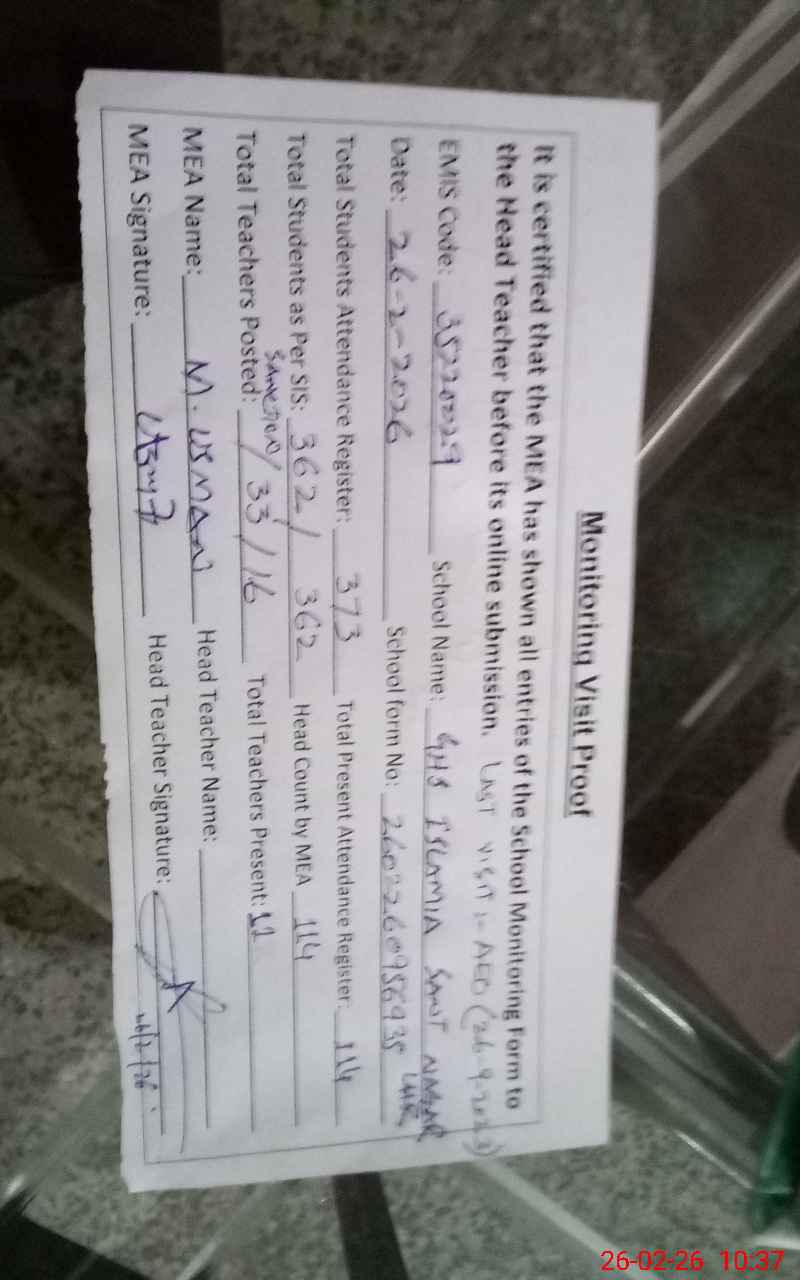 Monitoring Visit Proof
It is certified that the MEA has shown all entries of the School Monitoring Form to
the Head Teacher before its online submission. LAST VISIT :- AEO (26-9-2023)
EMIS Code: 35220029 School Name: GHS ISLAMIA SANT NAGAR LHR
Date: 26-2-2026 School form No:
Total Students Attendance Register: 373 Total Present Attendance Register: 114
Total Students as Per SIS: 362 / 362 Head Count by MEA 114
Total Teachers Posted: SANCTION / 33 / 16 Total Teachers Present: 12
MEA Name: M. USMAN Head Teacher Name:
MEA Signature: Head Teacher Signature:
26/2/26
26-02-26 10:37